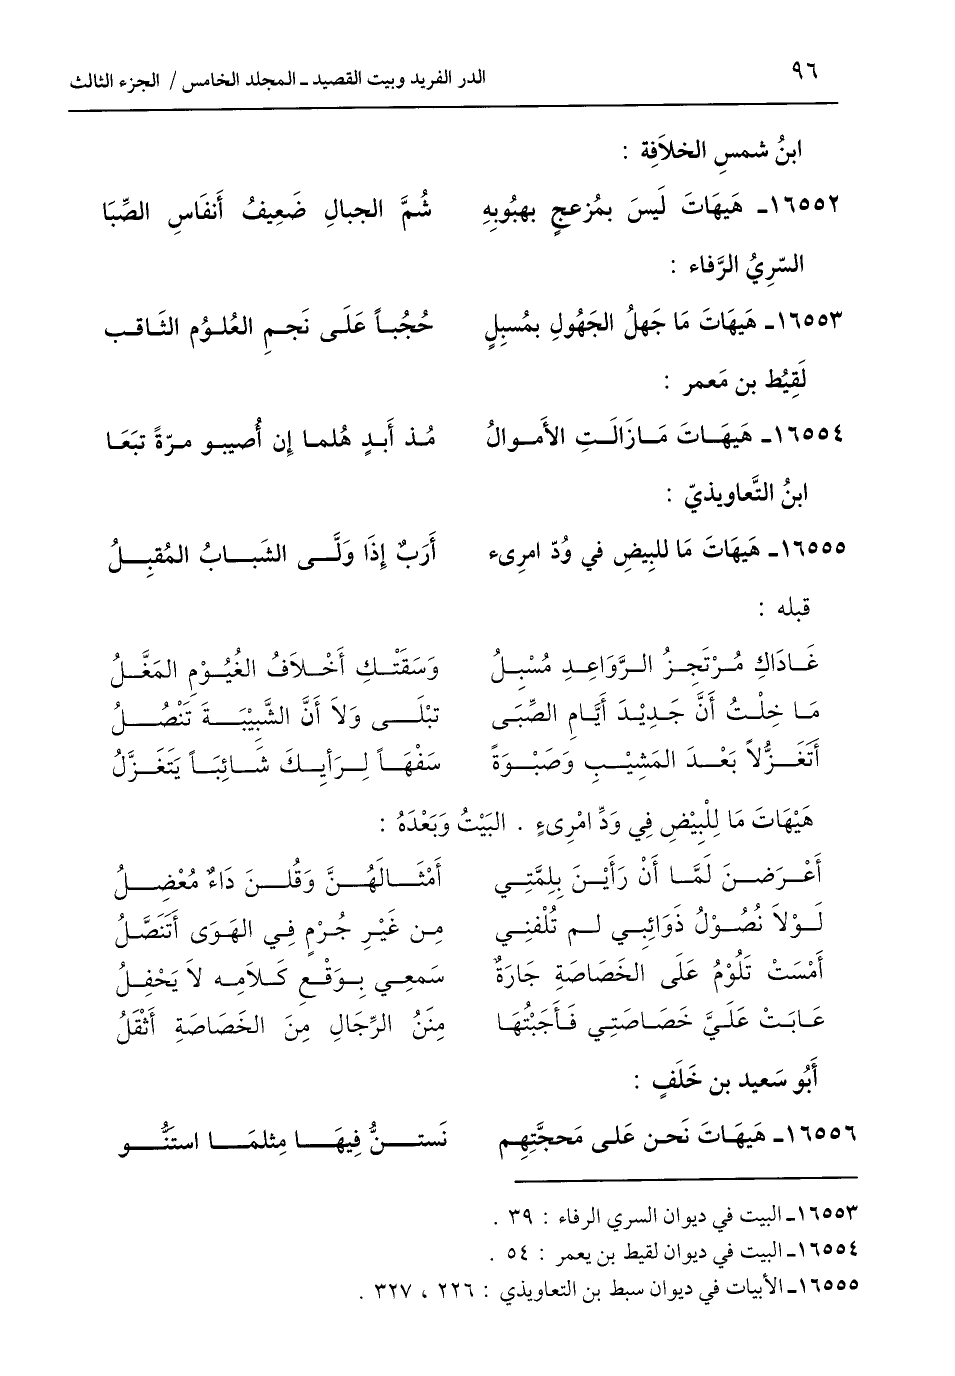 ٩٦ الدر الفريد وبيت القصيد ـ المجلد الخامس / الجزء الثالث
ابنُ شمسِ الخلاَفِة :
١٦٥٥٢ـ هَيهَاتَ لَيسَ بمُزعجٍ بهبُوبِهِ شُمَّ الجبالِ ضَعيفُ أَنفَاسِ الصِّبَا
السّرِيُ الرَّفاء :
١٦٥٥٣ـ هَيهَاتَ مَا جَهلُ الجَهُولِ بمُسبِلٍ حُجُباً عَلَى نَجمِ العُلوُم الثَاقب
لَقِيُط بن مَعمر :
١٦٥٥٤ـ هَيهَات مَازَالَتِ الأَموالُ مُذ أَبدٍ هُلما إن أُصيبو مرّةً تبَعَا
ابنُ التَّعاويذيّ :
١٦٥٥٥ـ هَيهَاتَ مَا للبِيضِ في وُدّ امرِىء أَربٌ إذَا وَلَّى الشَبابُ المُقبِلُ
قبله :
غَادَاكِ مُرْتَجِزُ الرَّوَاعِدِ مُسْبِلُ وَسَقَتْكِ أخْلاَفُ الغُيُوْمِ المَغَّلُ
مَا خِلْتُ أنَّ جَدِيْدَ أيَّامِ الصِّبَى تبْلَى وَلاَ أنَّ الشَّبِيْبَةَ تَنْصُلُ
أتَغَزُّلاً بَعْدَ المَشِيْبِ وَصَبْوَةً سَفْهَاً لِرَأيِكَ شَائِبَاً يَتَغَزَّلُ
هَيْهَاتَ مَا لِلْبِيْضِ فِي وَدِّ امْرِىءٍ . البَيْتُ وَبَعْدَهُ :
أعْرَضنَ لَمَّا أنْ رَأيْنَ بِلِمَّتِي أمْثَالَهُنَّ وَقُلنَ دَاءٌ مُعْضِلُ
لَوْلاَ نُصُوْلُ ذَوَائِبِي لم تُلْفنِي مِن غَيْرِ جُرْمٍ فِي الهَوَى أتَنَصَّلُ
أمْسَتْ تَلُوْمُ عَلَى الخَصَاصَةِ جَارَةٌ سَمعِي بِوَقْعِ كَلاَمِه لاَ يَحْفِلُ
عَابَتْ عَلَيَّ خَصَاصَتِي فَأجَبْتُهَا مِنَنُ الرِّجَالِ مِنَ الخَصَاصَةِ أثْقَلُ
أَبُو سَعيد بن خَلَفٍ :
١٦٥٥٦ـ هَيهَاتَ نَحن عَلى مَحجَّتِهم نَستنُّ فِيهَا مِثلمَا استَنُّو
١٦٥٥٣ـ البيت في ديوان السري الرفاء : ٣٩ .
١٦٥٥٤ـ البيت في ديوان لقيط بن يعمر : ٥٤ .
١٦٥٥٥ـ الأبيات في ديوان سبط بن التعاويذي : ٢٢٦ ، ٣٢٧ .